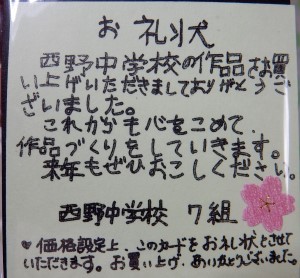 お礼状
西野中学校の作品をお買
い上げいただきましてありがとうご
ざいました。
これからも心をこめて
作品づくりをしていきます。
来年もぜひおこしください。
西野中学校 7組
♥価格設定上、このカードをお礼状とさせて
いただきます。お買い上げ、ありがとうございました。